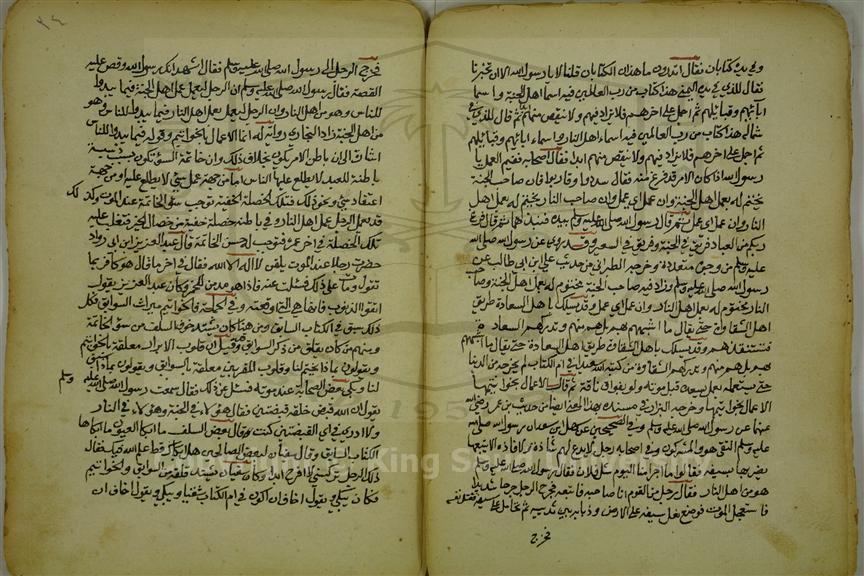 وفي يده كتابان فقال اتدرون ما هذان الكتابان قلنا لا يا رسول الله الا ان تخبرنا
فقال للذي في يده اليمنى هذا كتاب من رب العالمين فيه اسما اهل الجنة واسما
ابائهم وقبائلهم ثم اجمل على اخرهم فلا يزاد فيهم ولا ينقص منهم ثم قال للذي في
شماله هذا كتاب من رب العالمين فيه اسماء اهل النار واسماء ابائهم وقبائلهم
ثم اجمل على اخرهم فلا يزاد فيهم ولا ينقص منهم ابدا فقال اصحابه ففيم العمل يا
رسول الله اذا كان الامر قد فرغ منه فقال سددوا وقاربوا فان صاحب الجنة
يختم له بعمل اهل الجنة وان عمل اي عمل وان صاحب النار يختم له بعمل اهل
النار وان عمل اي عمل ثم قال رسول الله صلى الله عليه وسلم بيده فنبذهما ثم قال فرغ
ربكم من العباد فريق في الجنة وفريق في السعير وقد روي عن رسول الله صلى الله
عليه وسلم من وجوه متعددة وخرجه الطبراني من حديث علي ابن ابي طالب عن
رسول الله صلى الله عليه وسلم وزاد فيه صاحب الجنة مختوم له بعمل اهل الجنة وصاحب
النار مختوم له بعمل اهل النار وان عمل اي عمل وقد يسلك باهل السعادة طريق
اهل الشقاوة حتى يقال ما اشبههم بهم بل هم منهم وتدركهم السعادة
فتستنقذهم وقد يسلك باهل الشقاوة طريق اهل السعادة حتى يقال ما اشبههم
بهم بل هم منهم وتدركهم الشقاوة من كتبه الله سعيدا في ام الكتاب لم يخرجه من الدنيا
حتى يستعمله بعمل يسعده قبل موته ولو بفواق ناقة ثم قال الاعمال بخواتيمها
الاعمال بخواتيمها وخرجه البزار في مسنده بهذا المعنى ايضا من حديث بن عمر رضي الله
عنهما عن رسول الله صلى الله عليه وسلم وفي الصحيحين عن سهل بن سعد ان رسول الله صلى الله
عليه وسلم التقى هو والمشركون وفي اصحابه رجل لا يدع لهم شاذة ولا فاذة الا اتبعها
يضربها بسيفه فقالوا ما اجزأ منا اليوم مثل فلان فقال رسول الله صلى الله عليه وسلم
هو من اهل النار فقال رجل من القوم انا صاحبه فاتبعه فجرح الرجل جرحا شديدا
فاستعجل الموت فوضع نصل سيفه على الارض وذبابه بين ثدييه ثم تحامل على سيفه فقتل نفسه
فخرج
٢٤
فخرج الرجل الى رسول الله صلى الله عليه وسلم فقال اشهد انك رسول الله وقص عليه
القصة فقال رسول الله صلى الله عليه وسلم ان الرجل ليعمل عمل اهل الجنة فيما يبدوا
للناس وهو من اهل النار وان الرجل ليعمل بعمل اهل النار فيما يبدوا للناس وهو
من اهل الجنة زاد البخاري رواية له انما الاعمال بالخواتيم وقوله فيما يبدوا للناس
اشارة الى ان باطن الامر يكون بخلاف ذلك وان خاتمة السؤ تكون بسبب دسيسة
باطنة للعبد لا يطلع عليها الناس اما من جهة عمل سيئ لا يطلع عليه او من جهة
اعتقاد سيئ ونحو ذلك فتلك الخصلة الخفية توجب سؤ الخاتمة عند الموت وكذلك
قد يعمل الرجل عمل اهل النار وفي باطنه خصلة خفية من خصال الخير فتغلب عليه
تلك الخصلة في اخر عمره فتوجب له حسن الخاتمة قال عبد العزيز ابن ابي رواد
حضرت رجلا عند الموت يلقن لا اله الا الله فقال في اخر ما قال هو كافر بما
تقول ومات على ذلك فسئلت عنه فاذا هو مدمن للخمر وكان عبد العزيز يقول
اتقوا الذنوب فانها هي التي اوقعته وفي الجملة فالخواتيم ميراث السوابق فكل
ذلك سبق في الكتاب السابق ومن هنا كان يشتد خوف السلف من سؤ الخاتمة
ومنهم من كان يقلق من ذكر السوابق وقد قيل ان قلوب الابرار معلقة بالخواتيم
ويقولون بماذا يختم لنا وقلوب المقربين معلقة بالسوابق ويقولون بماذا سبق
لنا وبكى بعض الصحابة عند موته فسئل عن ذلك فقال سمعت رسول الله صلى الله عليه وسلم
يقول ان الله قبض خلقه قبضتين فقال هؤلاء في الجنة وهؤلاء في النار
ولا ادري في اي القبضتين كنت وقال بعض السلف ما ابكى العيون ما ابكاها
الكتاب السابق وقال سفيان لبعض الصالحين هل ابكاك قط علم الله فيك فقال
ذلك الرجل تركتني لا افرح ابدا وكان سفيان يشتد قلقه من السوابق والخواتيم
فكان يبكي ويقول اخاف ان اكون في ام الكتاب شقيا ويبكي ويقول اخاف ان